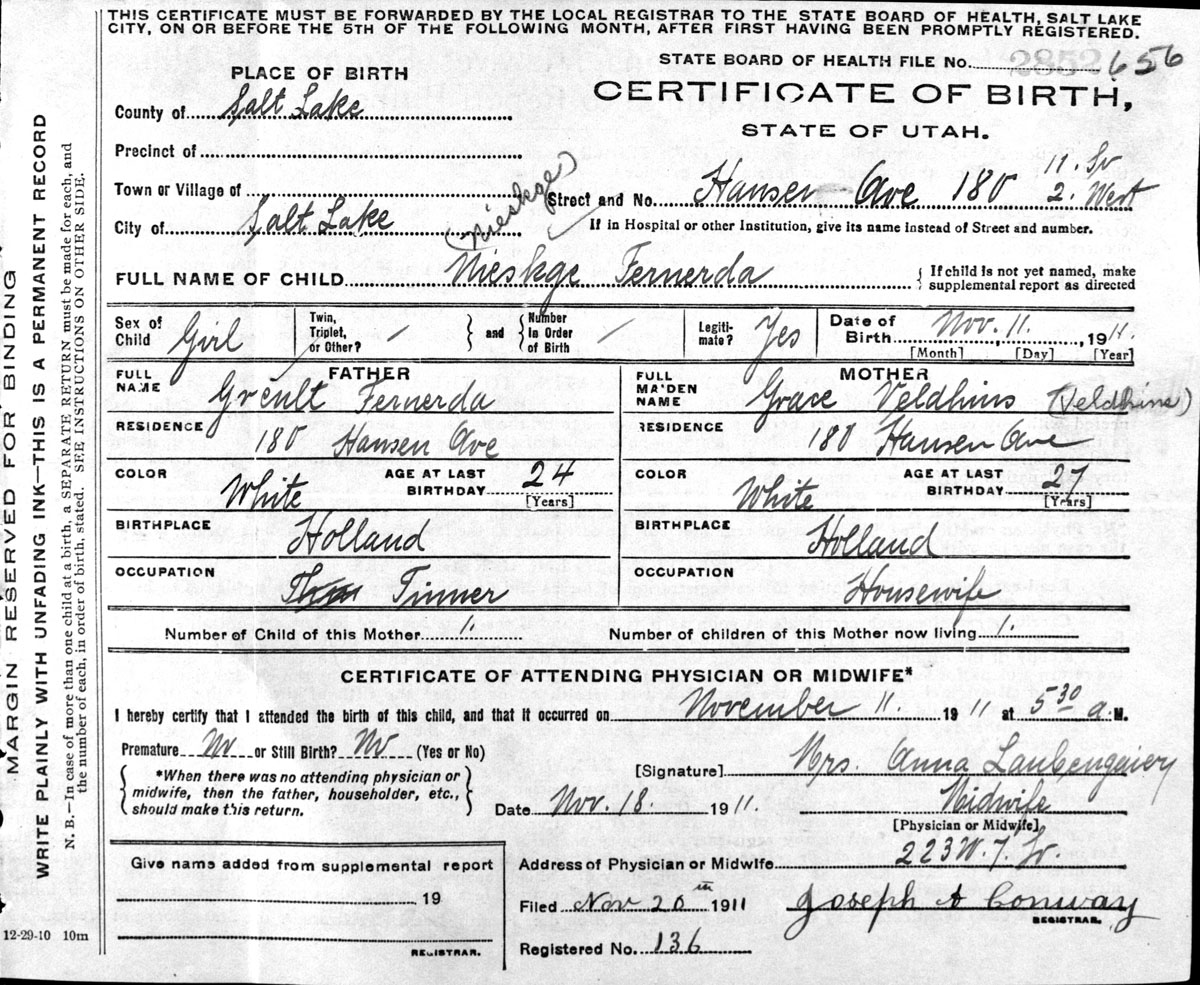 THIS CERTIFICATE MUST BE FORWARDED BY THE LOCAL REGISTRAR TO THE STATE BOARD OF HEALTH, SALT LAKE
CITY, ON OR BEFORE THE 5TH OF THE FOLLOWING MONTH, AFTER FIRST HAVING BEEN PROMPTLY REGISTERED.
STATE BOARD OF HEALTH FILE No. 2852 656
PLACE OF BIRTH
CERTIFICATE OF BIRTH,
STATE OF UTAH.
County of Salt Lake
Precinct of
Town or Village of
Street and No. Hansen Ave 180 11. So 2. West
City of Salt Lake
(Nieskge)
If in Hospital or other Institution, give its name instead of Street and number.
FULL NAME OF CHILD Nieskge Fernerda
{ If child is not yet named, make
supplemental report as directed
Sex of Child Girl
Twin, Triplet, or Other? / } and { Number In Order of Birth /
Legitimate? Yes
Date of Birth Nov. 11. 1911.
[Month] [Day] [Year]
FATHER
FULL NAME Greult Fernerda
RESIDENCE 180 Hansen Ave
COLOR White AGE AT LAST BIRTHDAY 24 [Years]
BIRTHPLACE Holland
OCCUPATION Tinner
MOTHER
FULL MAIDEN NAME Grace Veldhins (Veldhins)
RESIDENCE 180 Hansen Ave
COLOR White AGE AT LAST BIRTHDAY 27 [Years]
BIRTHPLACE Holland
OCCUPATION Housewife
Number of Child of this Mother 1.
Number of children of this Mother now living 1.
CERTIFICATE OF ATTENDING PHYSICIAN OR MIDWIFE*
I hereby certify that I attended the birth of this child, and that it occurred on November 11. 1911 at 5 30 a. M.
Premature No or Still Birth? No (Yes or No)
{ *When there was no attending physician or
midwife, then the father, householder, etc.,
should make this return. }
[Signature] Mrs. Anna Laubengaier
Date Nov. 18. 1911. Midwife
[Physician or Midwife]
Give name added from supplemental report
19
REGISTRAR.
Address of Physician or Midwife 223 W. 7. So.
Filed Nov 20 th 1911 Joseph A Conway
REGISTRAR.
Registered No. 136
12-29-10 10m
MARGIN RESERVED FOR BINDING
WRITE PLAINLY WITH UNFADING INK—THIS IS A PERMANENT RECORD
N. B.—In case of more than one child at a birth, a SEPARATE RETURN must be made for each, and
the number of each, in order of birth, stated. SEE INSTRUCTIONS ON OTHER SIDE.